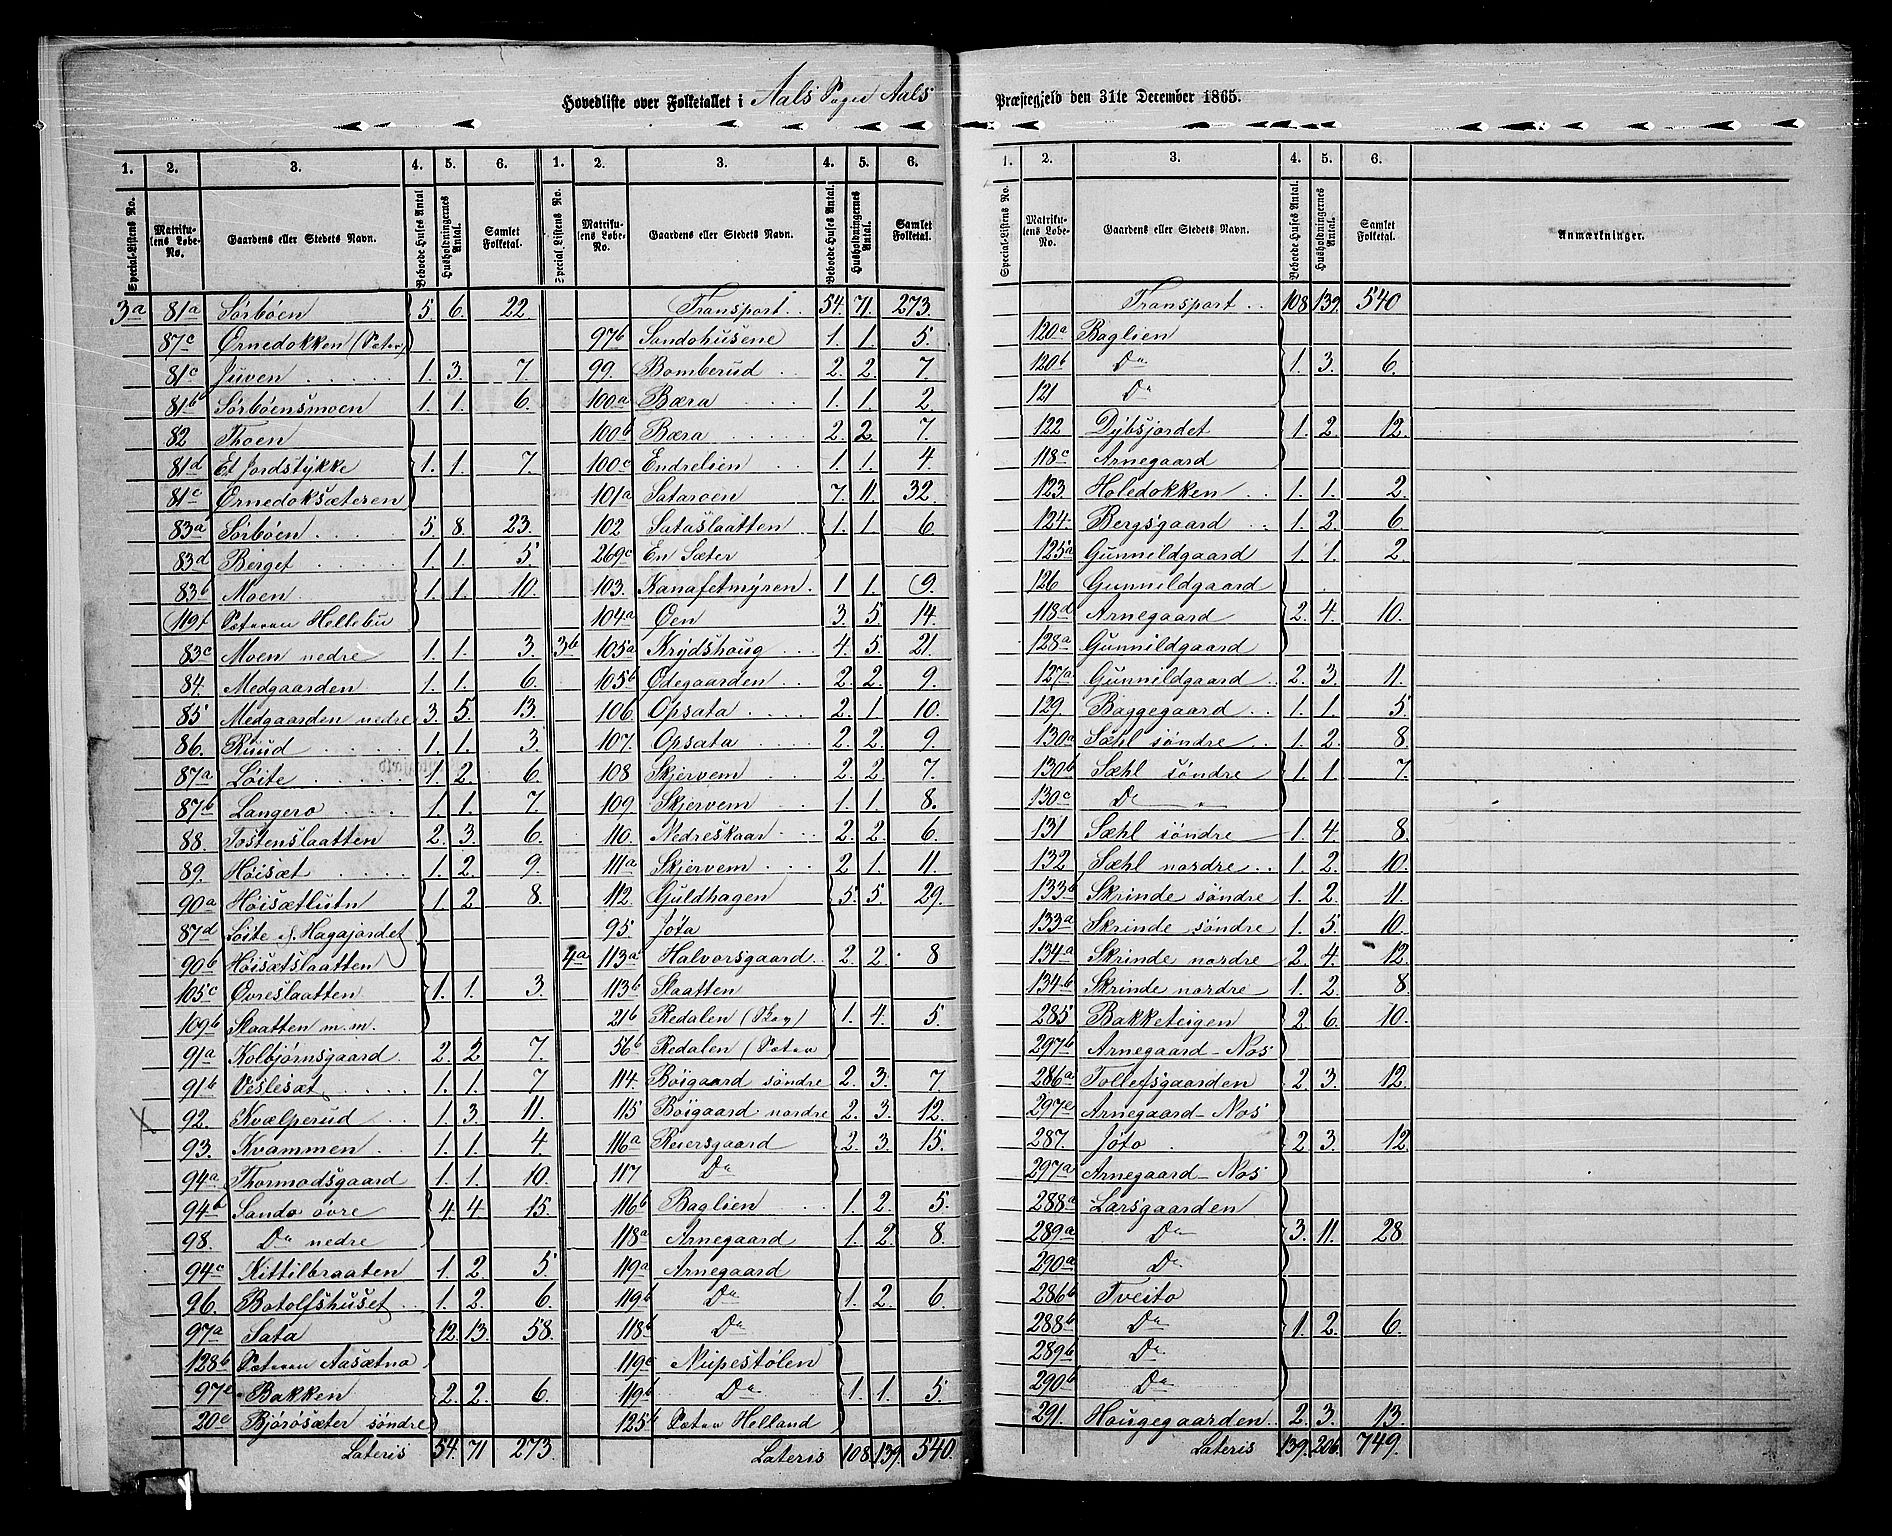 Hovedliste over Folketallet i Aals Sogn Aals Præstegjeld den 31te December 1865.
1. 2. 3. 4. 5. 6. 1. 2. 3. 4. 5. 6. 1. 2. 3. 4. 5. 6.
Special-Listens No. Matrikulens Løbe-No. Gaardens eller Stedets Navn. Beboede Huses Antal Husholdningernes Antal. Samlet Folketal.
Special-Listens No. Matrikulens Løbe-No. Gaardens eller Stedets Navn. Beboede Huses Antal. Husholdningernes Antal. Samlet Folketal.
Special-Listens No. Matrikulens Løbe-No. Gaardens eller Stedets Navn. Beboede Huses Antal. Husholdningernes Antal. Samlet Folketal. Anmærkninger.
3a 81a Sørbøen 5. 6. 22
87c Ørnedokken (Sæter)
81c Juven 1. 3. 7.
81b Sørbøensmoen 1. 1. 6.
82 Thoen
81d Et Jordstykke 1. 1. 7.
81c Ørnedoksæteren
83a Sørbøen 5. 8. 23.
83d Berget 1. 1. 5
83b Moen 1. 1. 10.
119f Sæteren Hellebu
83c Moen nedre 1. 1. 3.
84. Medgaarden 1. 1. 6.
85 Medgaarden nedre 3. 5. 13.
86. Ruud 1. 1. 3.
87a Løite 1. 2. 6.
87b Langero 1. 1. 7.
88. Tostenslaatten 2. 3. 6.
89. Høisæt 1. 2. 9.
90a Høisætlutn 1. 2 8.
87d Løite el. Hagajordet
90b Høisætslaatten
105c Øvreslaatten 1. 1. 3.
109b Slaatten m.m.
91a Kolbjørnsgaard 2. 2 7.
91b Veslesæt 1. 1. 7
92. Kvælperud 1. 3. 11.
93. Kvammen 1. 1. 4
94a Thormodsgaard 1. 1. 10.
94b Sando øvre 4. 4. 15.
98. Do nedre
94c Kittilbraaten 1. 2. 5.
96. Botolfshuset 1. 2. 6.
97a Sata 12. 13. 58.
128b Sæteren Aasætna
97c Bakken 2. 2. 6.
20c Bjørøsæter søndre
Lateris 54. 71 273.
Transport 54. 71. 273.
97b Sandohusene 1. 1. 5.
99. Bomberud 2. 2. 7.
100a Bæra 1. 1. 2
100b Bæra 2. 2 7.
100c Endrelien 1. 1. 4.
101a Sataroen 7. 11. 32.
102 Sataslaatten 1. 1. 6.
269c En Sæter
103. Kanafetmyren 1 1. 9.
104a Øen 3. 5. 14.
3b 105a Krydshoug 4. 5. 21.
105b Ødegaarden 2. 2. 9.
106. Opsata 2. 1. 10.
107. Opsata 2. 2. 9.
108 Skjervem 2. 2. 7.
109. Skjervem 1. 1. 8.
110. Nedreskaar 2. 2. 6.
111a Skjervem 2 1. 11.
112. Guldhagen 5. 5. 29.
95. Jøta
4a 113a Halvorsgaard 2. 2. 8
113b Slaatten
21b Redalen (Skov) 1. 4. 5.
56b Redalen (Sæter
114. Bøigaard søndre 2. 3. 7
115 Bøigaard nordre 2. 3. 12.
116a Reiersgaard 2. 3. 15.
117 Do
116b Baglien 1. 2. 5.
118a Arnegaard 1. 2 8.
119a Arnegaard
119b Do 1. 2. 6.
118b Do
119c Nupestølen
119b Do 1. 1. 5
125b Sæter Helland
Lateris 108. 139. 540.
Transport 108 139. 540
120a Baglien
120b Do 1. 3. 6.
121 Do
122 Dybsjordet 1. 2. 12.
118c Arnegaard
123. Holedokken 1. 1. 2.
124. Bergsgaard 1. 2. 6
125a Gunnildgaard 1. 1. 2
126 Gunnildgaard
118d Arnegaard 2. 4. 10.
128a Gunnildgaard
127a Gunnildgaard 2. 3. 11.
129. Baggegaard 1. 1. 5.
130a Sæhl søndre 1. 2. 8
130b Sæhl søndre 1. 1. 7.
130c Do
131 Sæhl søndre 1. 4. 8
132 Sæhl nordre 1. 2. 10.
133b Skrinde søndre 1. 2. 11.
133a Skrinde søndre 1. 5. 10.
134a Skrinde nordre 2. 4. 12
134b Skrinde nordre 1. 2. 8
285 Bakketeigen 2 6. 10.
297b Arnegaard-Nos
286a Tollefsgaarden 2 3. 12.
297e Arnegaard-Nos
287. Jøto 2 3. 12
297a Arnegaard-Nos
288a Larsgaarden
289a Do 3. 11. 28
290a Do
286b Tveito
288b Do 1. 2. 6.
289b Do
290b Do
291. Hougegaarden 2. 3. 13.
Lateris 139. 206. 749.